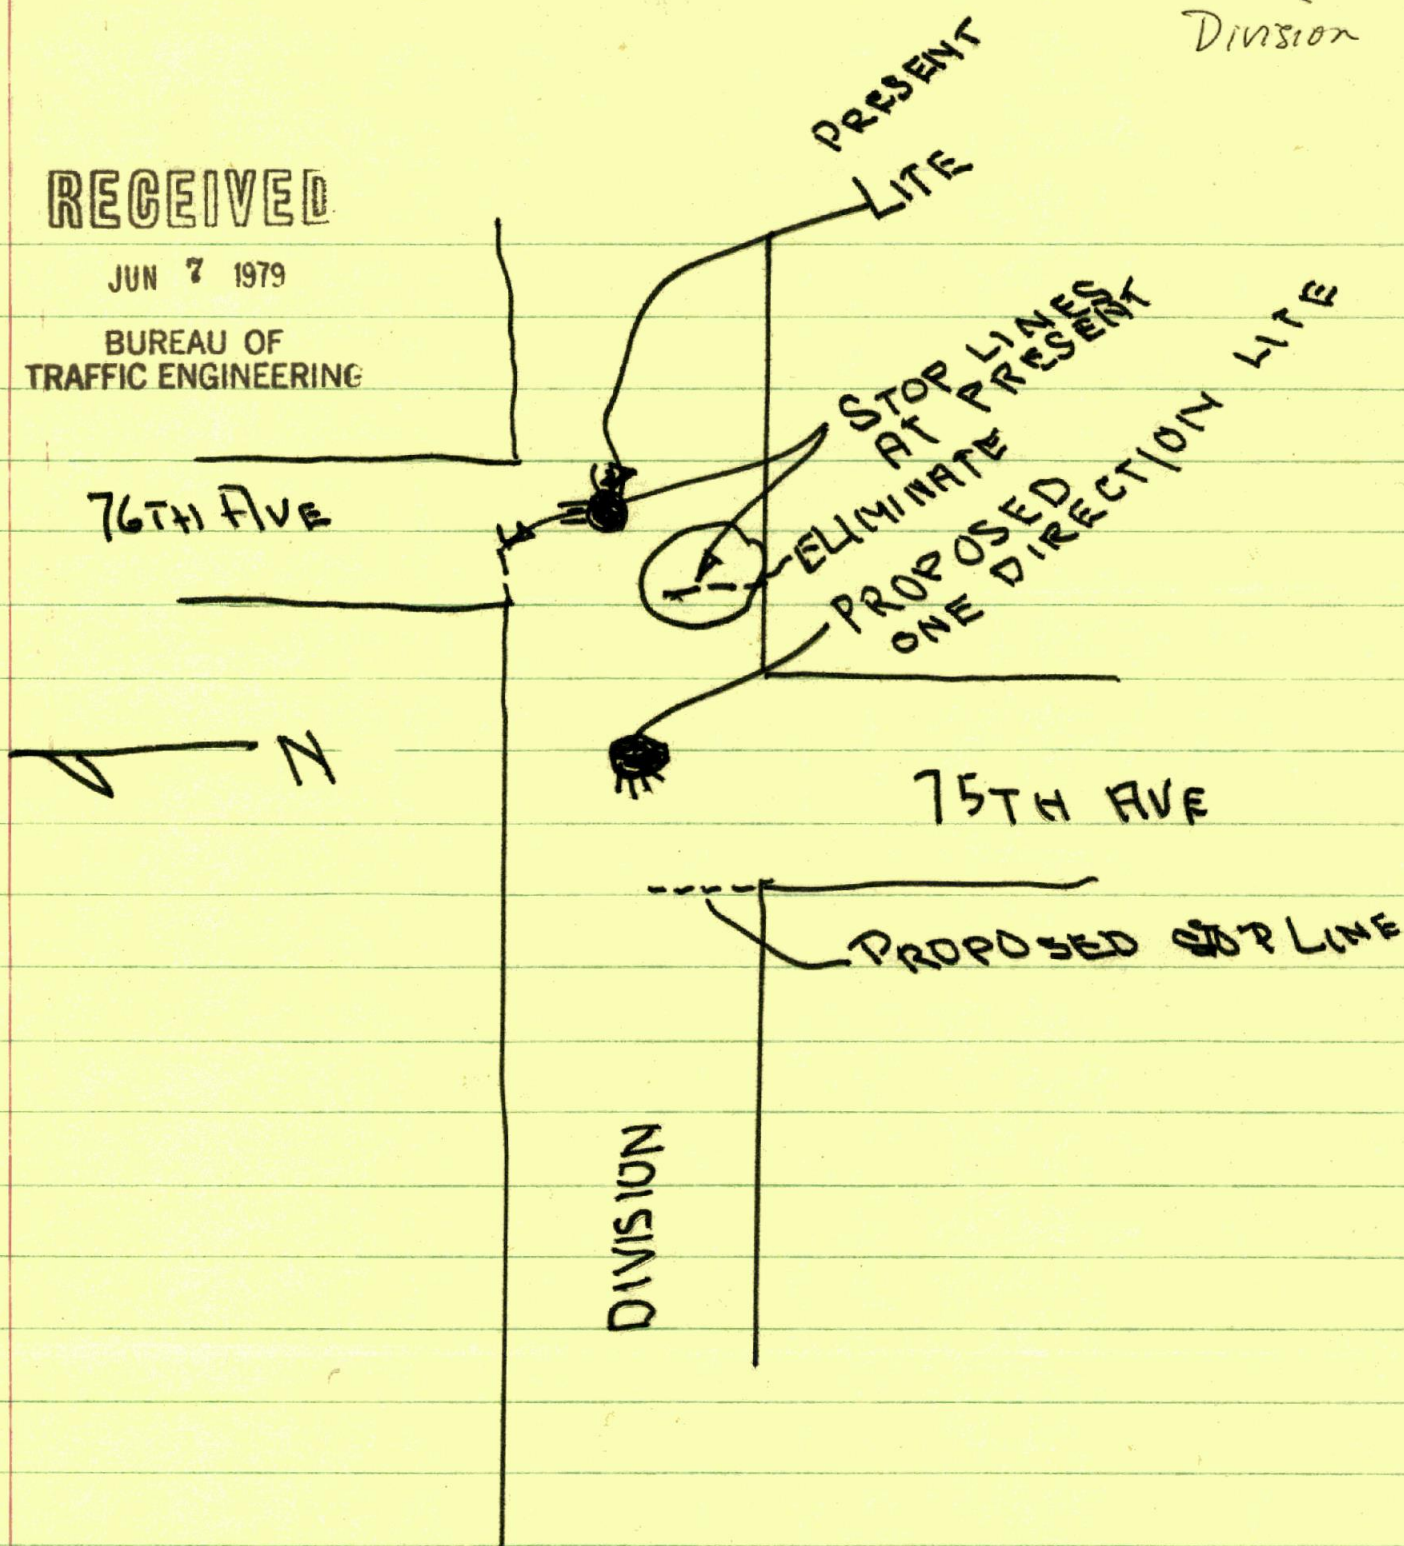 Division
PRESENT
LITE
RECEIVED
JUN 7 1979
BUREAU OF
TRAFFIC ENGINEERING
STOP LINES
AT PRESENT
ELIMINATE
PROPOSED
ONE DIRECTION LITE
76TH AVE
N
75TH AVE
PROPOSED STOP LINE
DIVISION